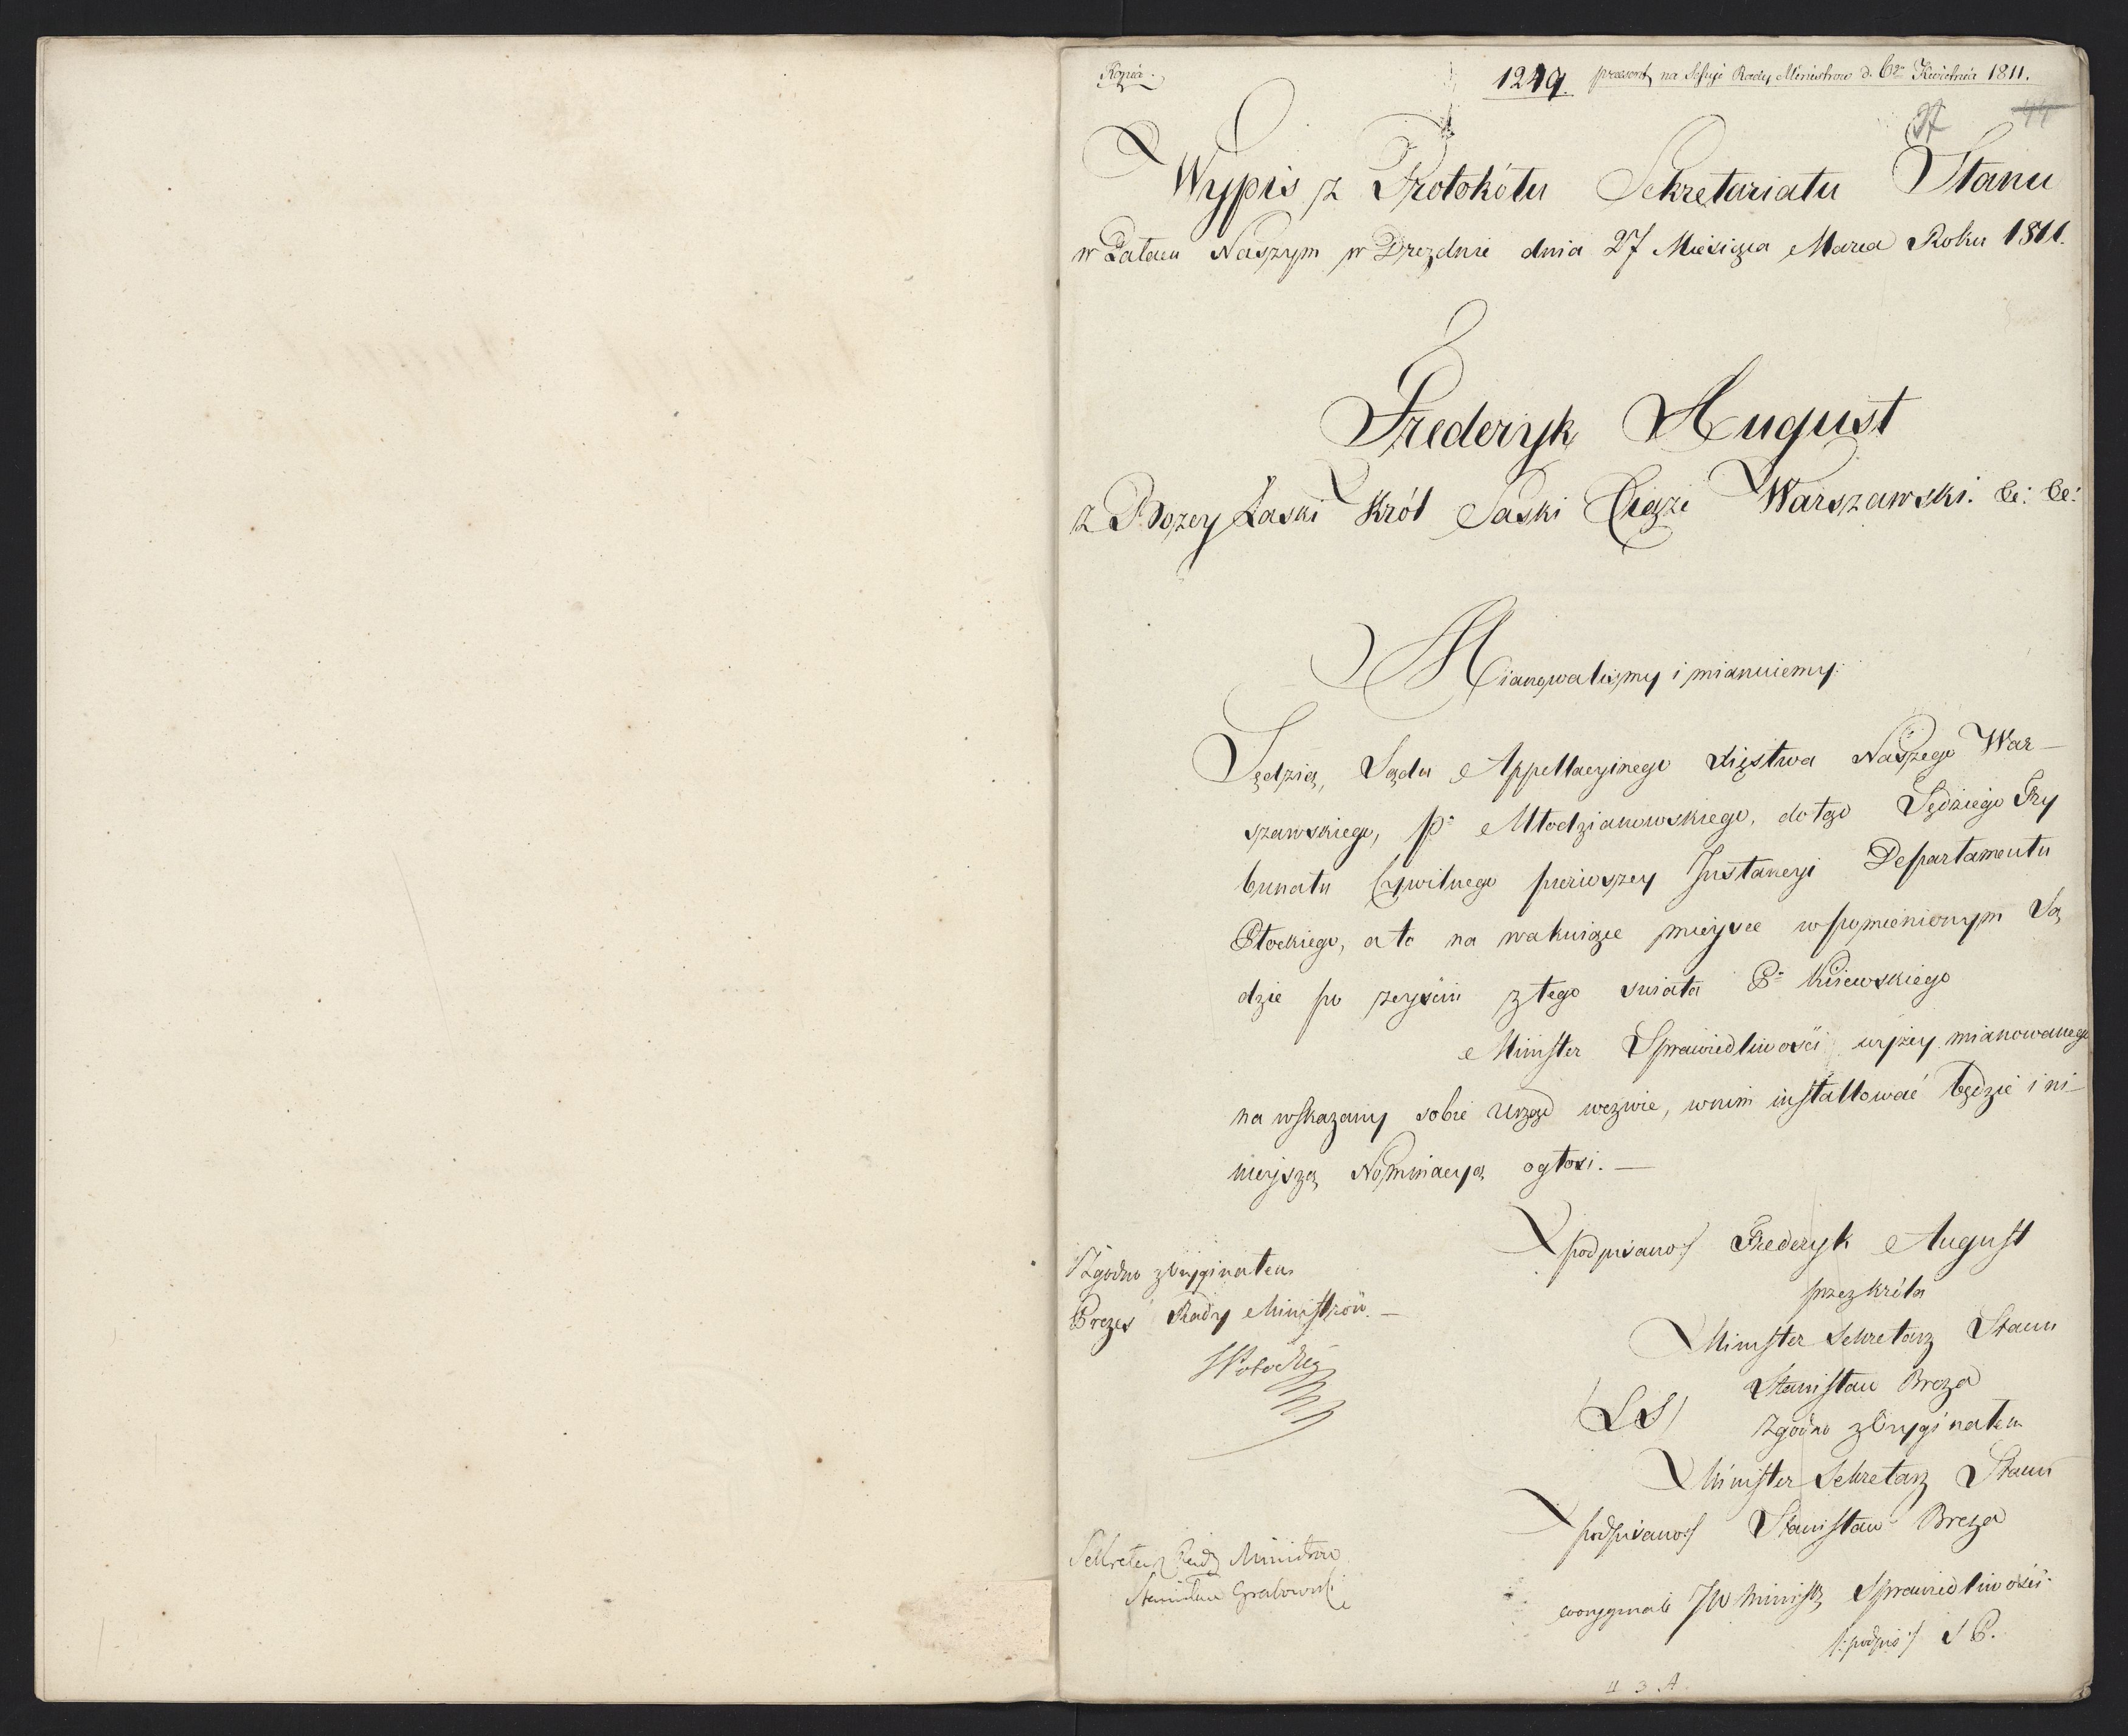 Kopia.
1249. praesent. na Sessyi Rady Ministrow d. 6go Kwietnia 1811.
37 44
Wypis z Protokółu Sekretariatu Stanu
w Pałacu Naszym w Dreznie dnia 27 Miesiąca Marca Roku 1811.
Frederyk August
z Bożey Łaski Król Saski Xiąże Warszawski. &c: &c:
Mianowaliśmy i mianuiemy:
Sędzią, Sądu Appellacyinego Xięstwa Naszego War-
szawskiego, P. Młodzianowskiego, dotąd Sędziego Try
bunatu Cywilnego pierwszey Instancyi Departamentu
Płockiego, a to na wakuiące mieysce wspomnienionym Są
dzie po zeyściu z tego swiata P. Kiiewskiego
Minister Sprawiedliwości wyżey mianowanego
na wskazany sobie Urząd wezwie, w nim installować będzie i ni-
nieyszą Nominacyą ogłosi. —
podpisano/ Frederyk August
przez króla
Minister Sekretarz Stanu
Stanisław Breza
(LS) Zgodno z Oryginałem
Minister Sekretarz Stanu
podpisano/ Stanisław Breza
w oryginale JW Ministr Sprawiedliwości
/:podpis:/ S P.
Zgodno z Oryginałem
Prezes Rady Ministrów. —
S Potocki
Sekretarz Rady Ministrow
Stanisław Grabowski
3 A.